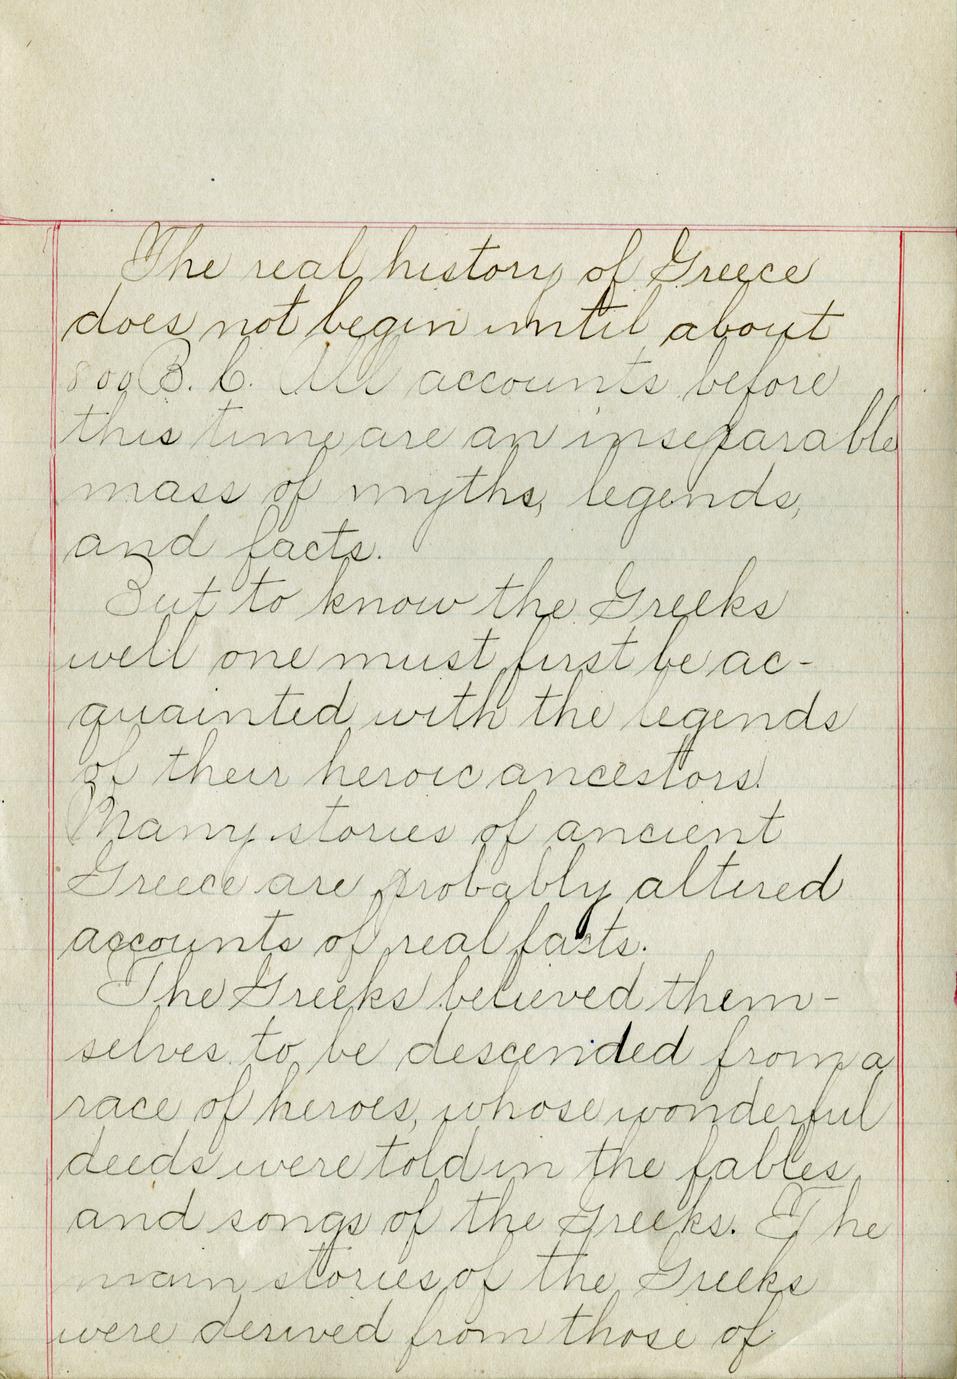 The real history of Greece
does not begin until about
800 B. C. All accounts before
this time are an inseparable
mass of myths, legends,
and facts.
But to know the Greeks
well one must first be ac-
quainted with the legends
of their heroic ancestors.
Many stories of ancient
Greece are probably altered
accounts of real facts.
The Greeks believed them-
selves to be descended from a
race of heroes, whose wonderful
deeds were told in the fables
and songs of the Greeks. The
main stories of the Greeks
were derived from those of